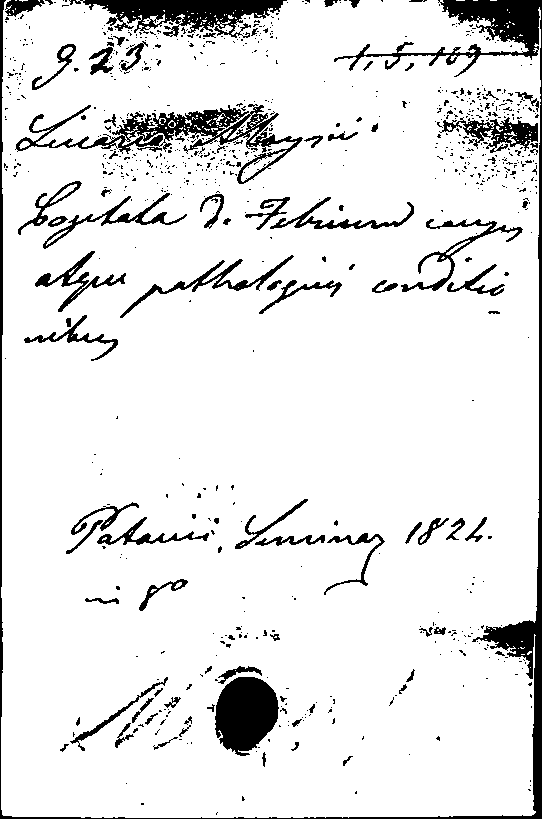 9.23. 1, 5, 169
Aloysii
Cogitata De Febrium causis
atque pathologicis conditio
nibus
Patavii, Seminar 1824.
in 8º